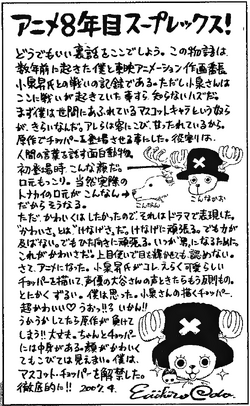 アニメ8年目スープレックス!
どうでもいい裏話をここでしよう。この物語は、
数年前に起きた僕と東映アニメーション作画委長
小泉昇氏との戦いの記録である。ただし小泉さんは
ここに戦いが起きていた事すら、知らないハズだ。
まず僕は世間にあふれているマスコットキャラという奴ら
が、きらいなんだ。アレらは客にこび、甘ったれているから。
原作でチョッパーを登場させる事にした。役割りは、
人間の言葉を話す面白動物。
初登場時、こんな顔だ。
口元もっこり。当然実際の
トナカイの口元がこんなん
だからそうなる。
こんなかお
こんなん→
ただ、かわいくはしたかったので、それはドラマで表現した。
"かわいさ"とは"けなげさ"だ。けなげに頑張る。でも力が
及ばない。でもひた向きに頑張る。いつか"男"になるために。
これがかわいさだ。上目使いで目も輝かせても認めない。
さて、アニメになった。小泉昇氏がコレ、えらく可愛らしい
チョッパーを描いて、声優の大谷さんの声ときたらもう反則もの。
とにかくずるい。僕は思った。小泉さんの描くチョッパー、
超かわいい♡うおっ!!いかん!!
うかうかしてたら原作が負けて
しまう!!大丈夫。ちゃんとチョッパー
には中身がある。顔がかわいく
てもこびては見えまい。僕は、
マスコット・チョッパーを解禁した。
徹底的に!! 2007.4.
Eiichiro Oda.